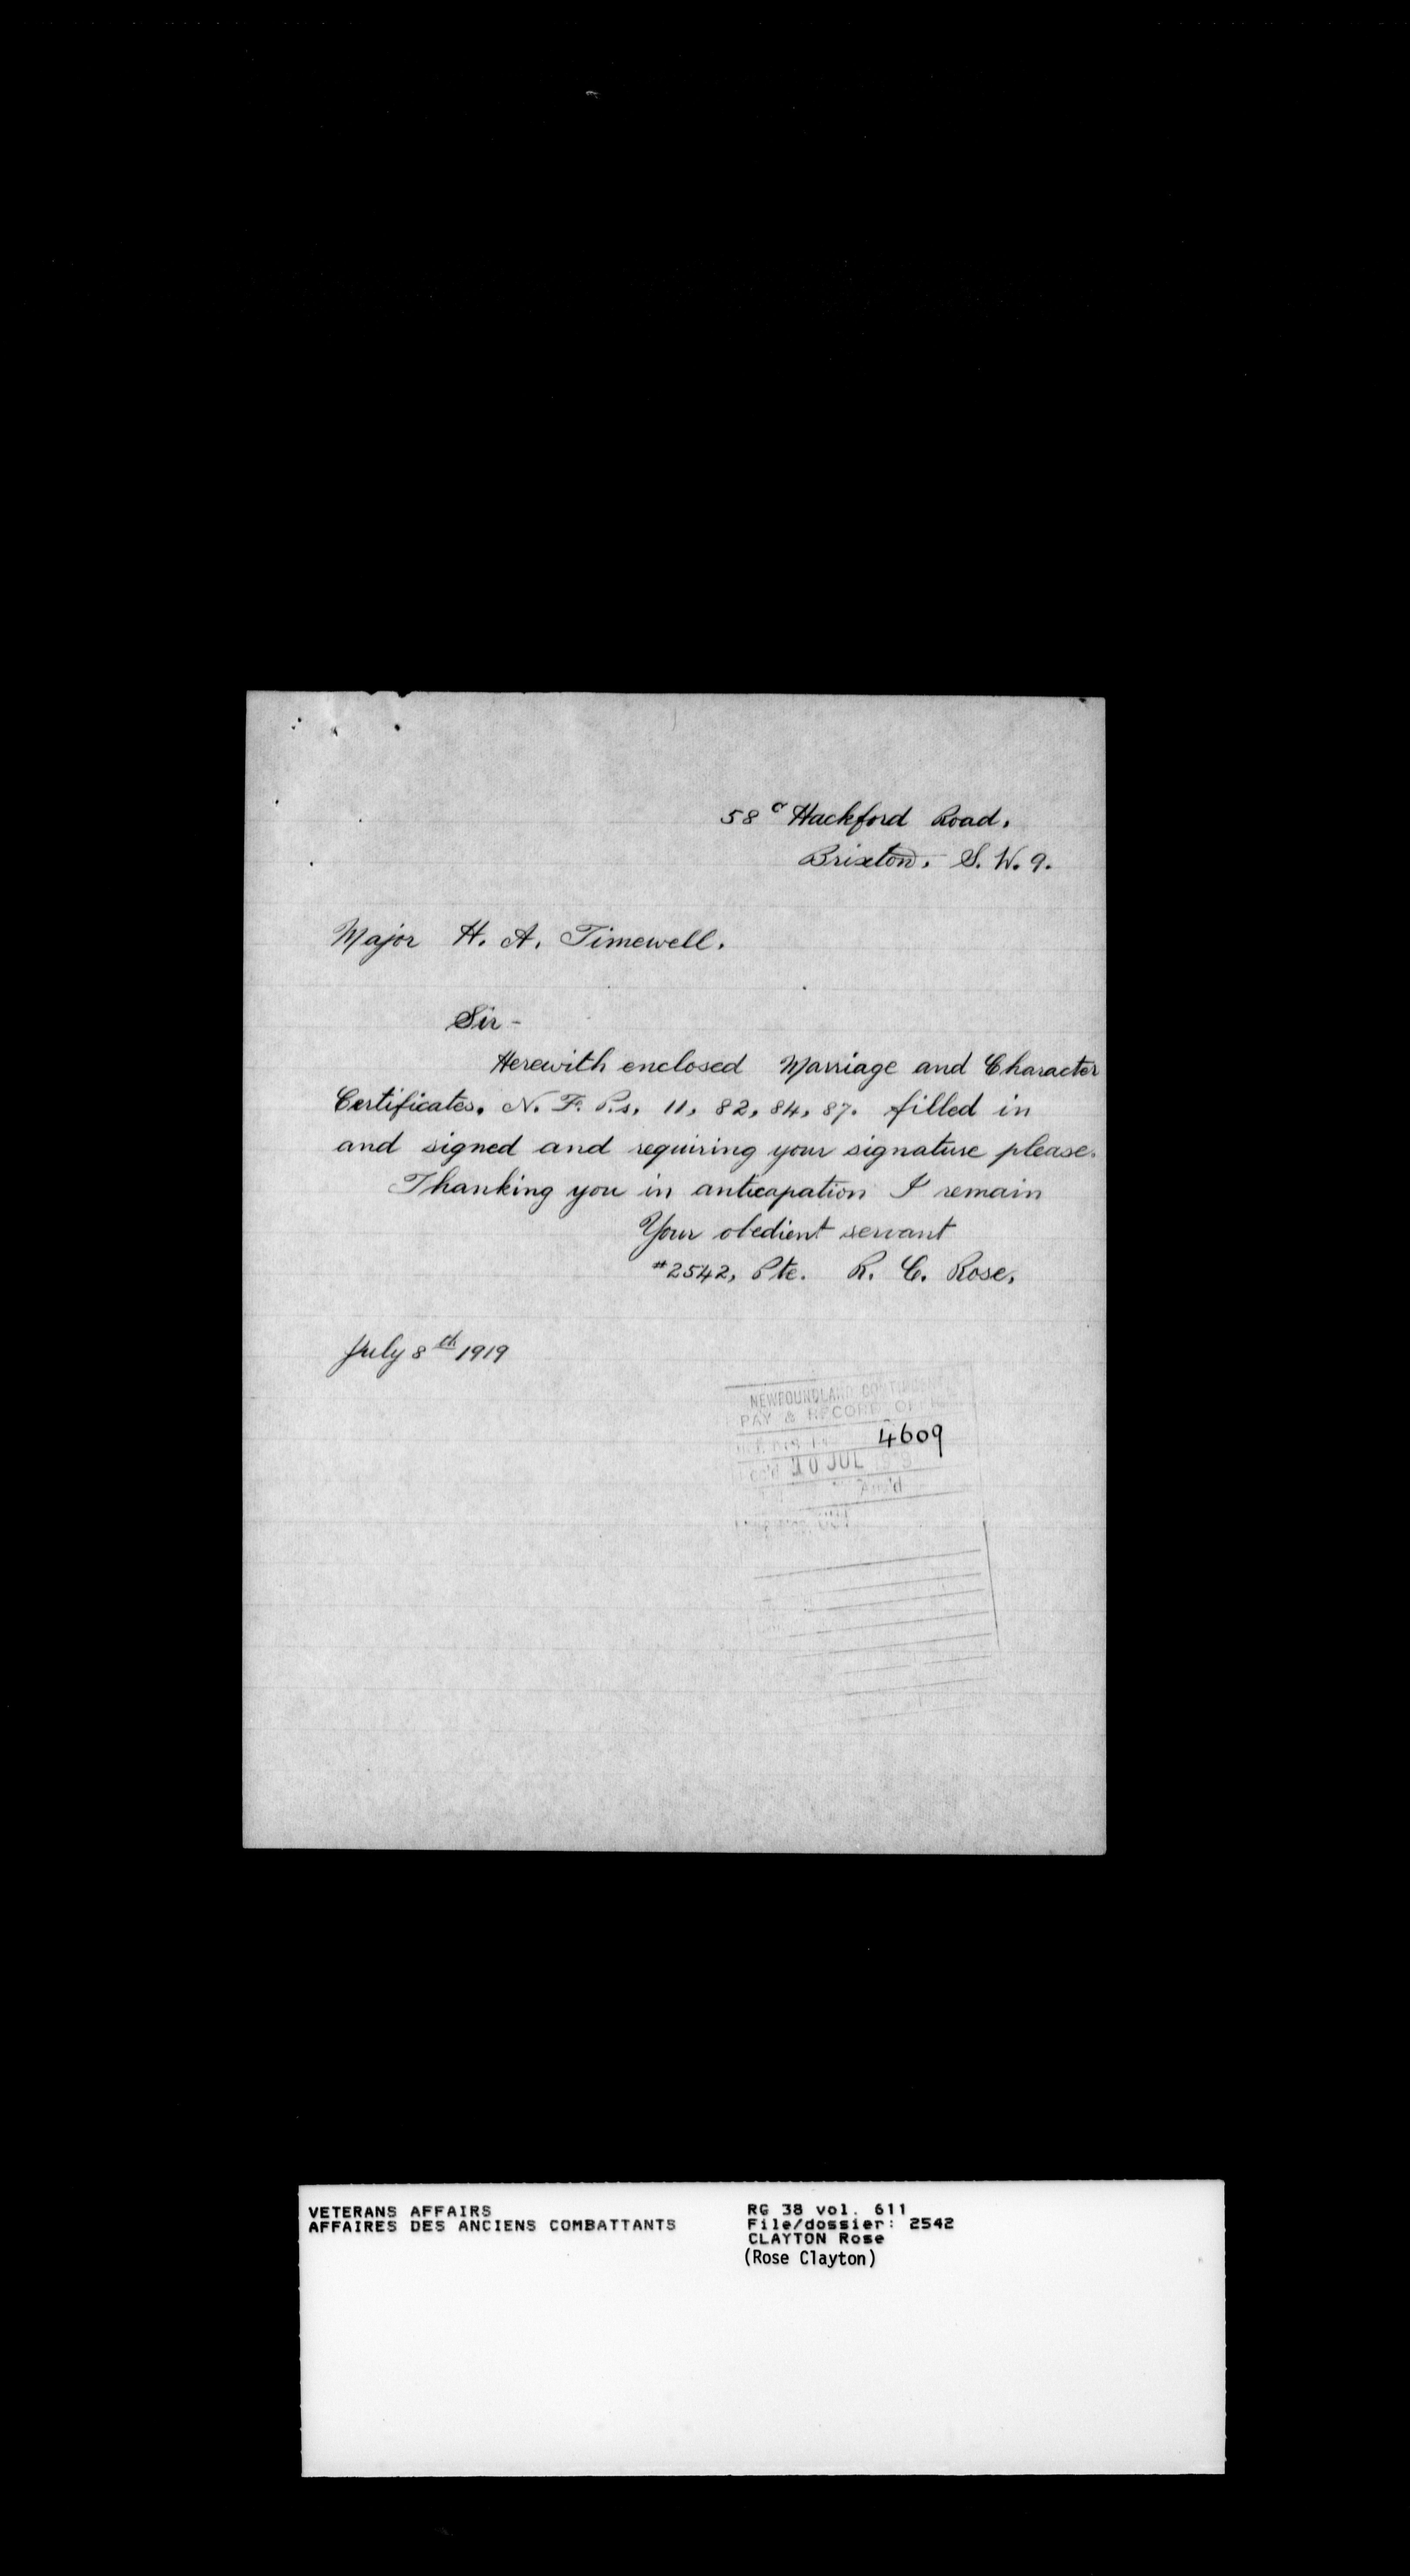 58a Hackford Road.
Brixton. S. W. 9.
Major H. A. Timewell.
Sir -
Herewith enclosed Marriage and Character
Certificates. N. F. P.s. 11, 82, 84, 87. filled in
and signed and requiring your signature please.
Thanking you in anticapation I remain
Your obedient servant
#2542, Pte. R. C. Rose.
July 8th 1919
NEWFOUNDLAND CONTINGENT
PAY & RECORD OFFICE
4609
10 JUL 1919
Ans'd
VETERANS AFFAIRS
AFFAIRES DES ANCIENS COMBATTANTS
RG 38 vol. 611
File/dossier: 2542
CLAYTON Rose
(Rose Clayton)